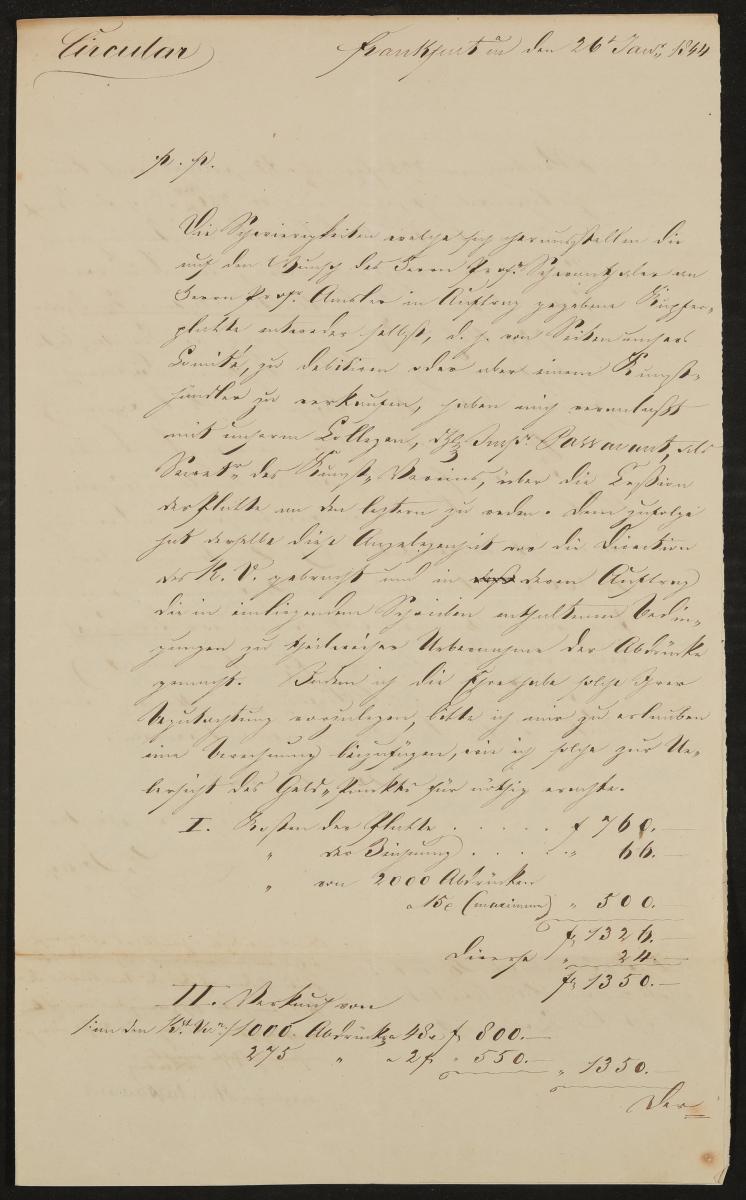 Circular
Frankfurt a/m den 26t Janr. 1844
p. p.
Die Schwierigkeiten welche sich herausstellen die
auf den Wunsch des Herrn Profr. Schwanthaler an
Herrn Profr. Amsler in Auftrag gegebene Kupfer-
platte entweder selbst, d. h. von Seiten unsers
Comité, zu debitiren oder aber einem Kunst-
händler zu verkaufen, haben mich veranlasst
mit unserm Collegen, Hr. Inspr. Passavant, als
Secretr. des Kunst-Vereins, über die Cession
der Platte an den leztern zu reden. Dem zufolge
hat derselbe diese Angelegenheit vor die Direction
des K. V. gebracht und in deren Auftrag
die in einliegendem Schreiben enthaltenen Bedin-
gungen zu theilweiser Uebernahme der Abdrücke
gemacht. Indem ich die Ehre habe solche Ihrer
Begutachtung vorzulegen, bitte ich mir zu erlauben
eine Berechnung beizufügen, wie ich solche zur Ue-
bersicht des Geld-Punktes für nöthig erachte.
I. Kosten der Platte . . . . . f 760.—
" der Zeichnung . . . . . " 66.—
" von 2000 Abdrücken
a 15x (maximum) " 500.—
f 1326.—
Diverse " 24.—
f 1350.—
II. Verkauf von
/: an den Kst. Ver. :/ 1000 Abdrücke a 48x f 800.—
275 " a 2f " 550.— " 1350.—
Der